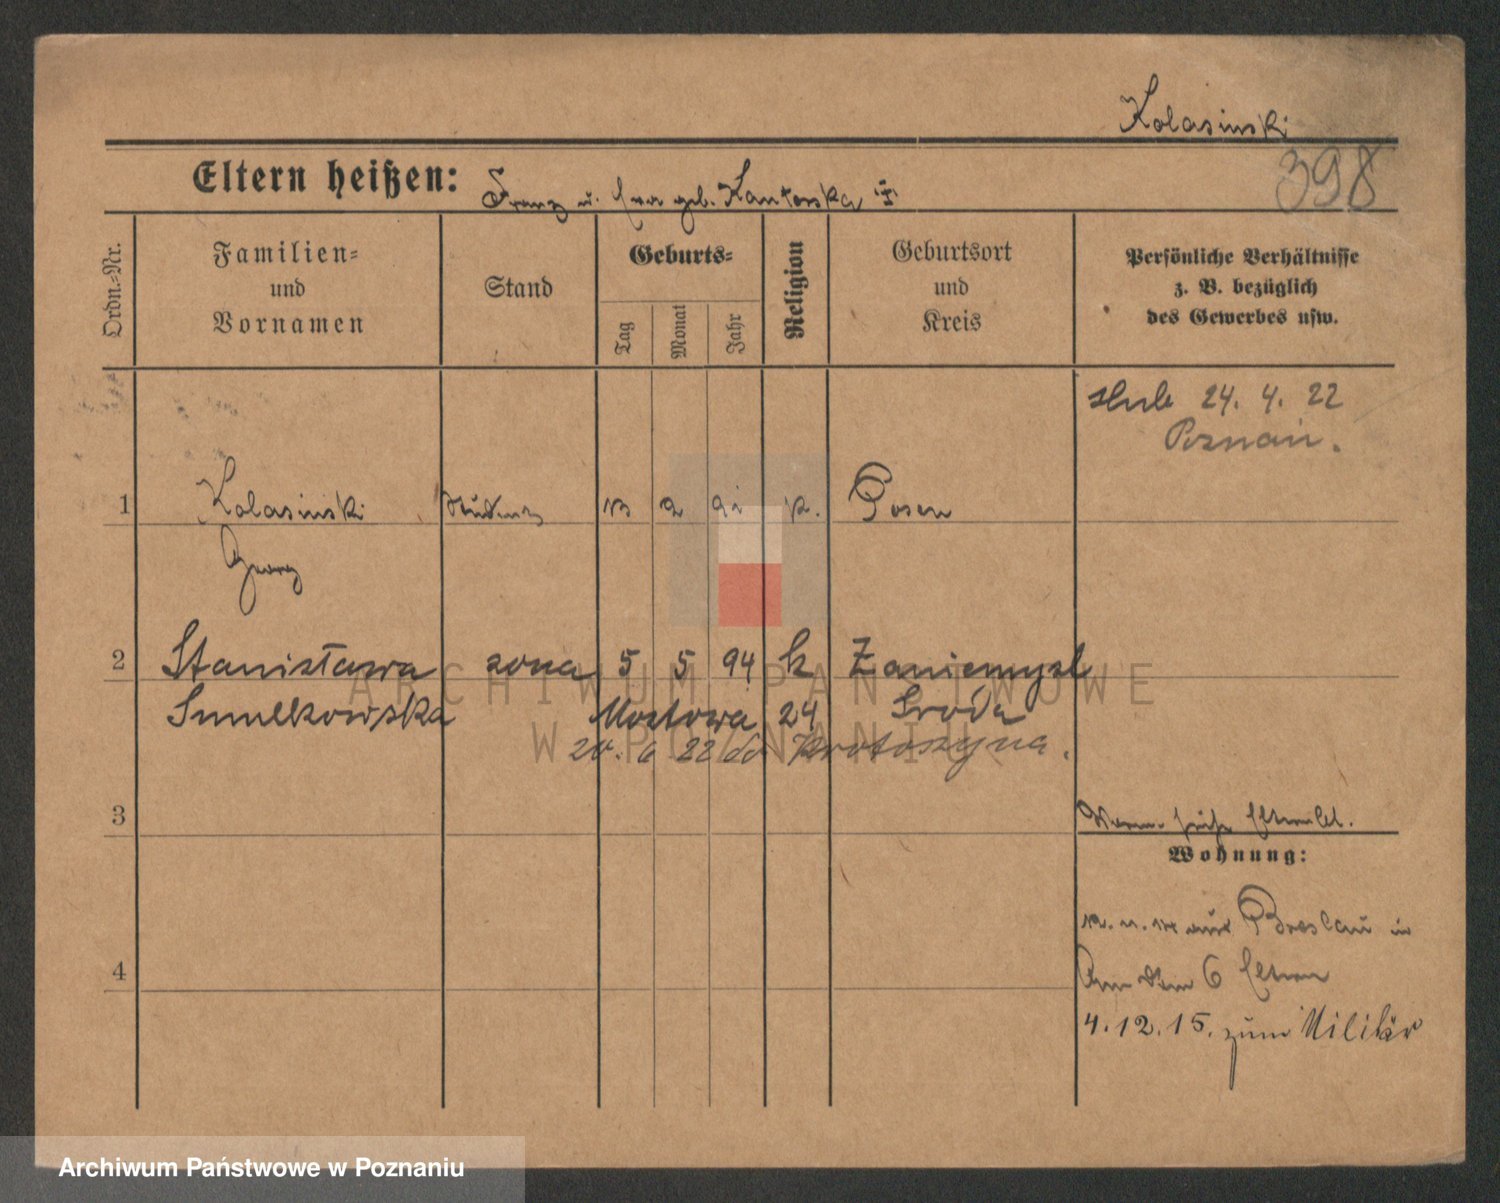 Kolasinski
398
Eltern heißen: Franz u. Eva geb. Kantorska
Ordn.-Nr.
Familien- und Vornamen
Stand
Geburts-
Tag
Monat
Jahr
Religion
Geburtsort und Kreis
Persönliche Verhältnisse
z. B. bezüglich
des Gewerbes usw.
ślub 24. 4. 22
Poznań.
1 Kolasinski Student 2 k. Posen
Georg
2 Stanisława żona 5 5 94 k Zaniemyśl
Smułkowska Mostowa 24 Środa
20. 6 22 do Krotoszyna.
3
Wohnung:
aus Breslau in
6 Eltern
4
4.12.15. zum Militär
ARCHIWUM PAŃSTWOWE
W POZNANIU
Archiwum Państwowe w Poznaniu